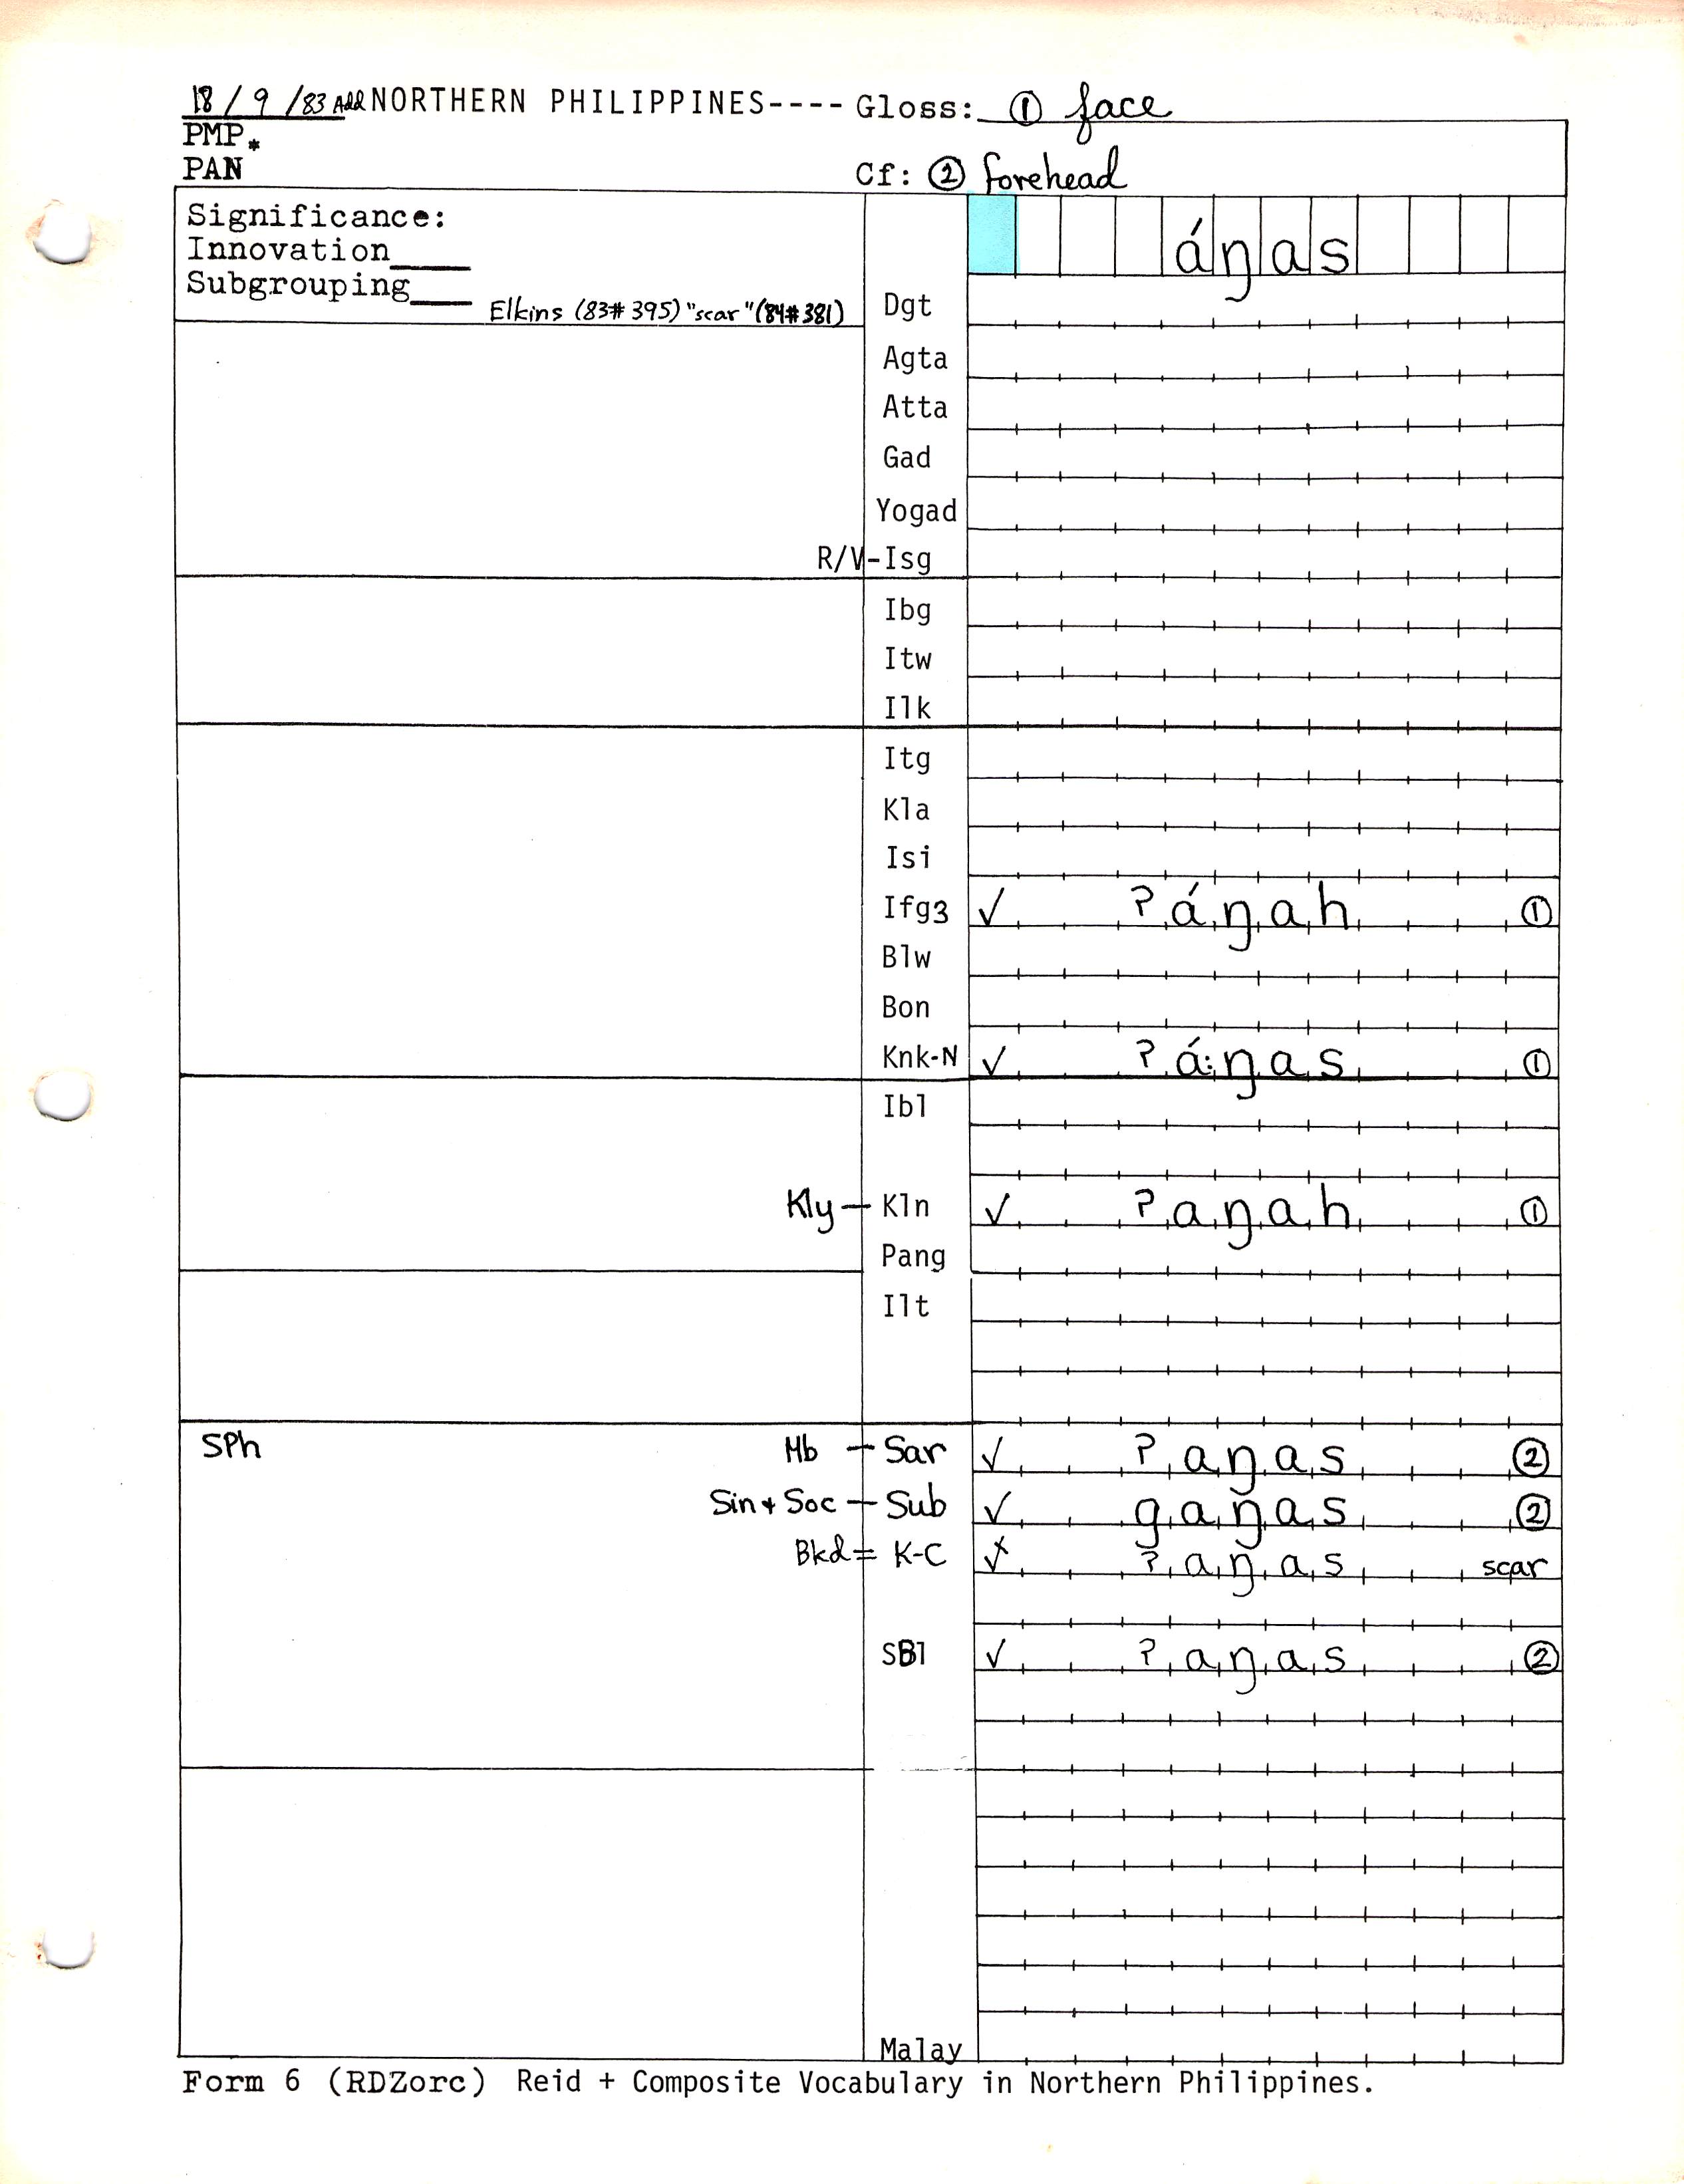 18/9/83 Add NORTHERN PHILIPPINES---- Gloss: ① face
PMP*
PAN Cf: ② forehead
Significance:
Innovation____
Subgrouping____ Elkins (83#395) "scar" (84#381)
áŋas
Dgt
Agta
Atta
Gad
Yogad
R/V-Isg
Ibg
Itw
Ilk
Itg
Kla
Isi
Ifg3 ✓ ʔáŋah ①
Blw
Bon
Knk-N ✓ ʔá:ŋas ①
Ibl
Kly — Kln ✓ ʔaŋah ①
Pang
Ilt
SPh Mb — Sar ✓ ʔaŋas ②
Sin + Soc — Sub ✓ gaŋas ②
Bkd = K-C ✓x ʔaŋas scar
SBl ✓ ʔaŋas ②
Malay
Form 6 (RDZorc) Reid + Composite Vocabulary in Northern Philippines.